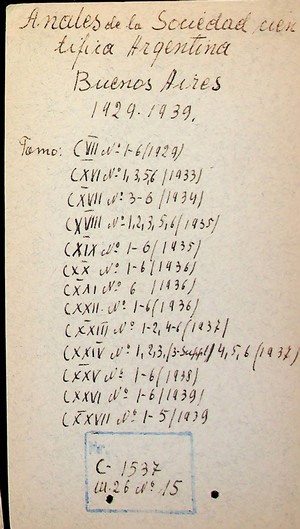 Anales de la Sociedad cien
tifica Argentina
Buenos Aires
1929-1939.
Tomo: CVII Nº 1-6 (1929)
CXVI Nº 1,3,5,6 (1933)
CXVII Nº 3-6 (1934)
CXVIII Nº 1,2,3,5,6 (1935)
CXIX Nº 1-6 (1935)
CXX Nº 1-6 (1936)
CXXI Nº 6 (1936)
CXXII Nº 1-6 (1936)
CXXIII Nº 1-2, 4-6 (1937)
CXXIV Nº 1,2,3, (3-Suppl) 4, 5, 6 (1937)
CXXV Nº 1-6 (1938)
CXXVI Nº 1-6 (1939)
CXXVII Nº 1-5 (1939
Nr.
C-1537
III.26 Nº 15